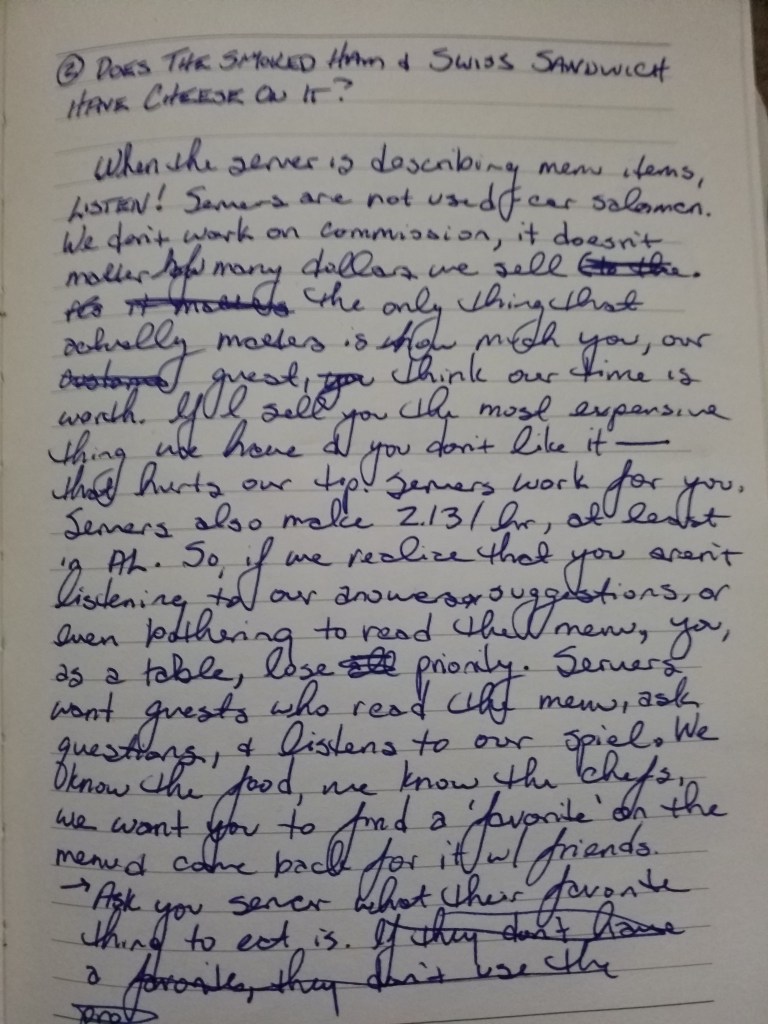 ③ DOES THE SMOKED HAM & SWISS SANDWICH
HAVE CHEESE ON IT?
When the server is describing menu items,
LISTEN! Servers are not used car salesmen.
We don't work on commission, it doesn't
matter how many dollars we sell to the.
it matters the only thing that
actually matters is how much you, our
customer guest, you think our time is
worth. If I sell you the most expensive
thing we have & you don't like it —
that hurts our tip. Servers work for you.
Servers also make 2.13/hr, at least
in AL. So, if we realize that you aren't
listening to our answers, suggestions, or
even bothering to read the menu, you,
as a table, lose priority. Servers
want guests who read the menu, ask
questions, & listens to our spiel. We
know the food, we know the chefs,
we want you to find a 'favorite' on the
menu & come back for it w/ friends.
→ Ask you server what their favorite
thing to eat is. If they don't have
a favorite, they don't use the